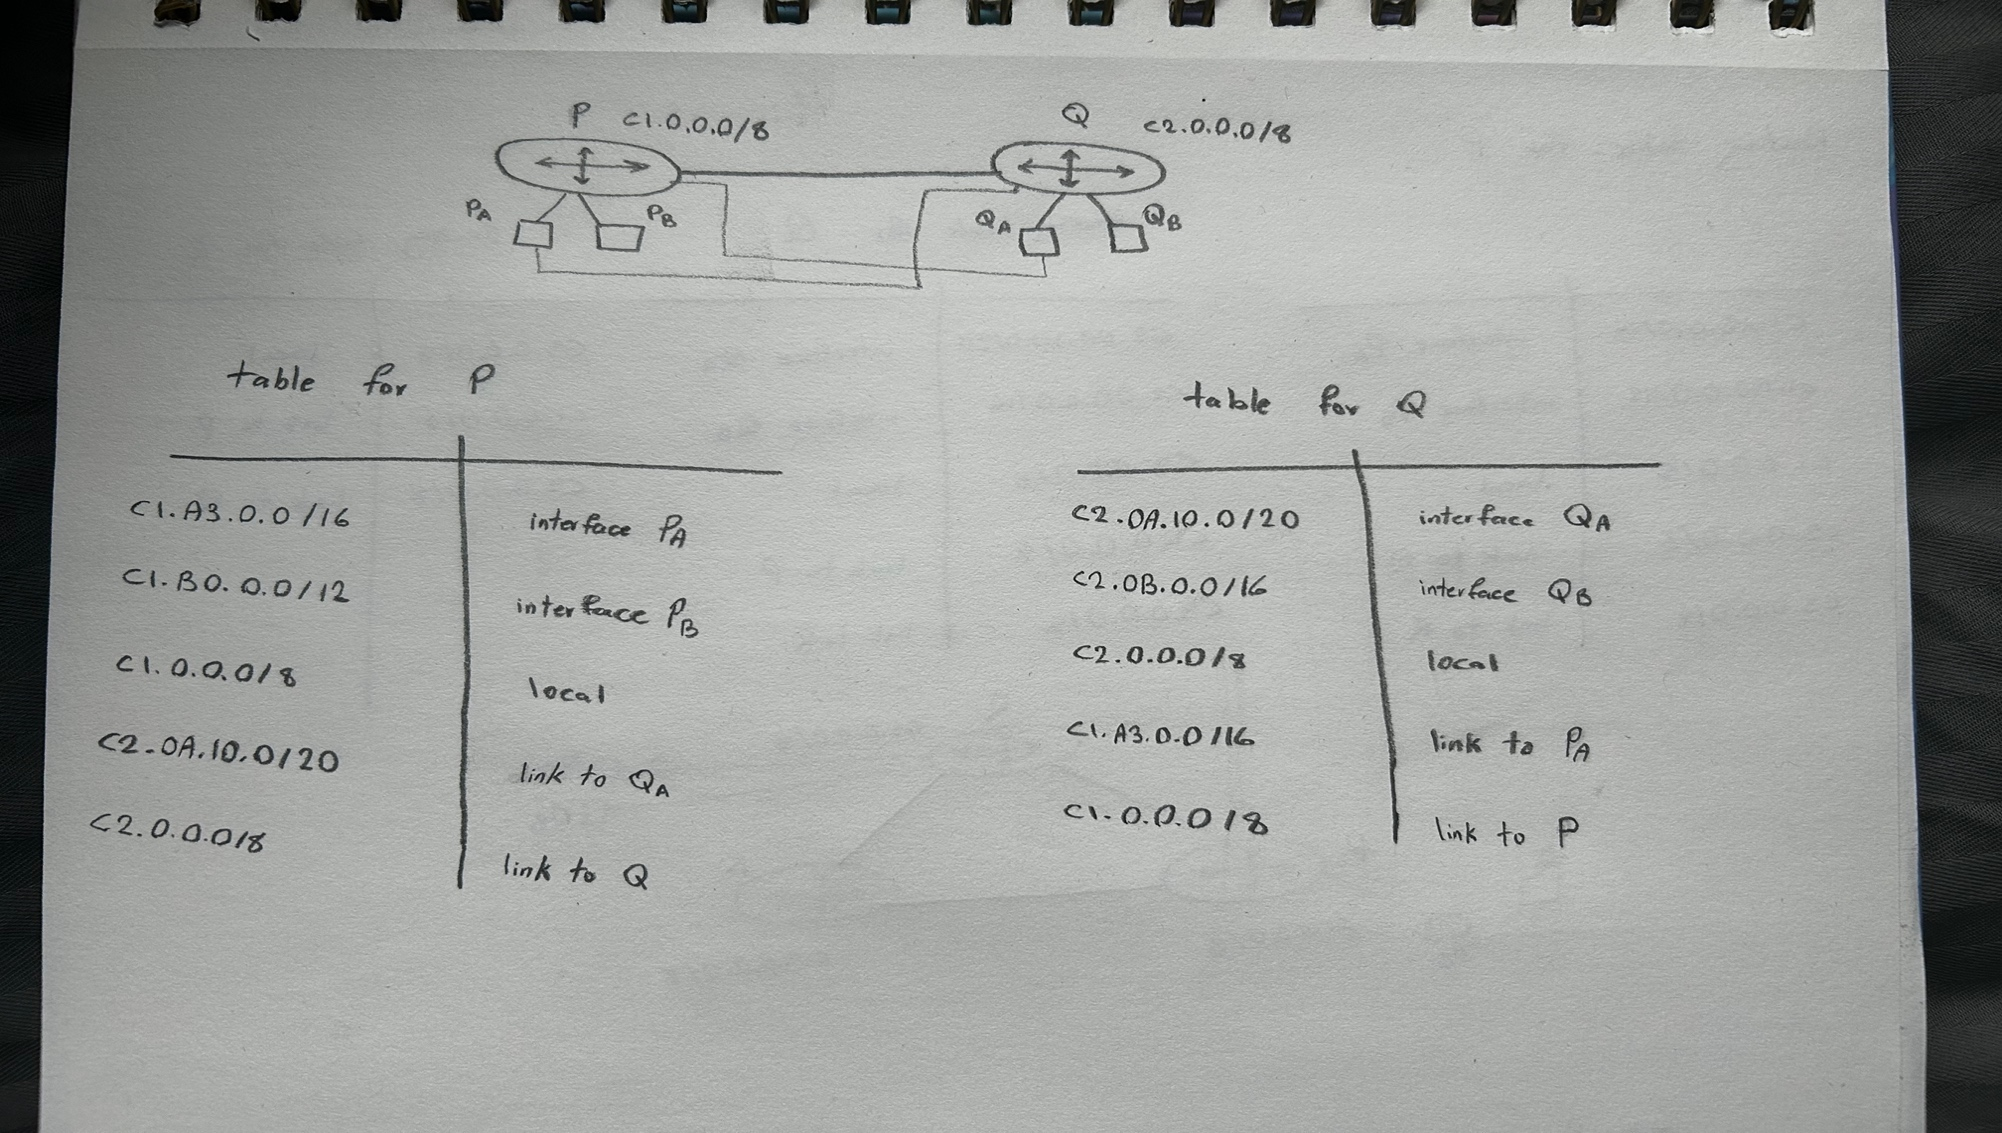 P C1.0.0.0/8
Q C2.0.0.0/8
PA
PB
QA
QB
table for P
C1.A3.0.0/16 interface PA
C1.B0.0.0/12 interface PB
C1.0.0.0/8 local
C2.0A.10.0/20 link to QA
C2.0.0.0/8 link to Q
table for Q
C2.0A.10.0/20 interface QA
C2.0B.0.0/16 interface QB
C2.0.0.0/8 local
C1.A3.0.0/16 link to PA
C1.0.0.0/8 link to P